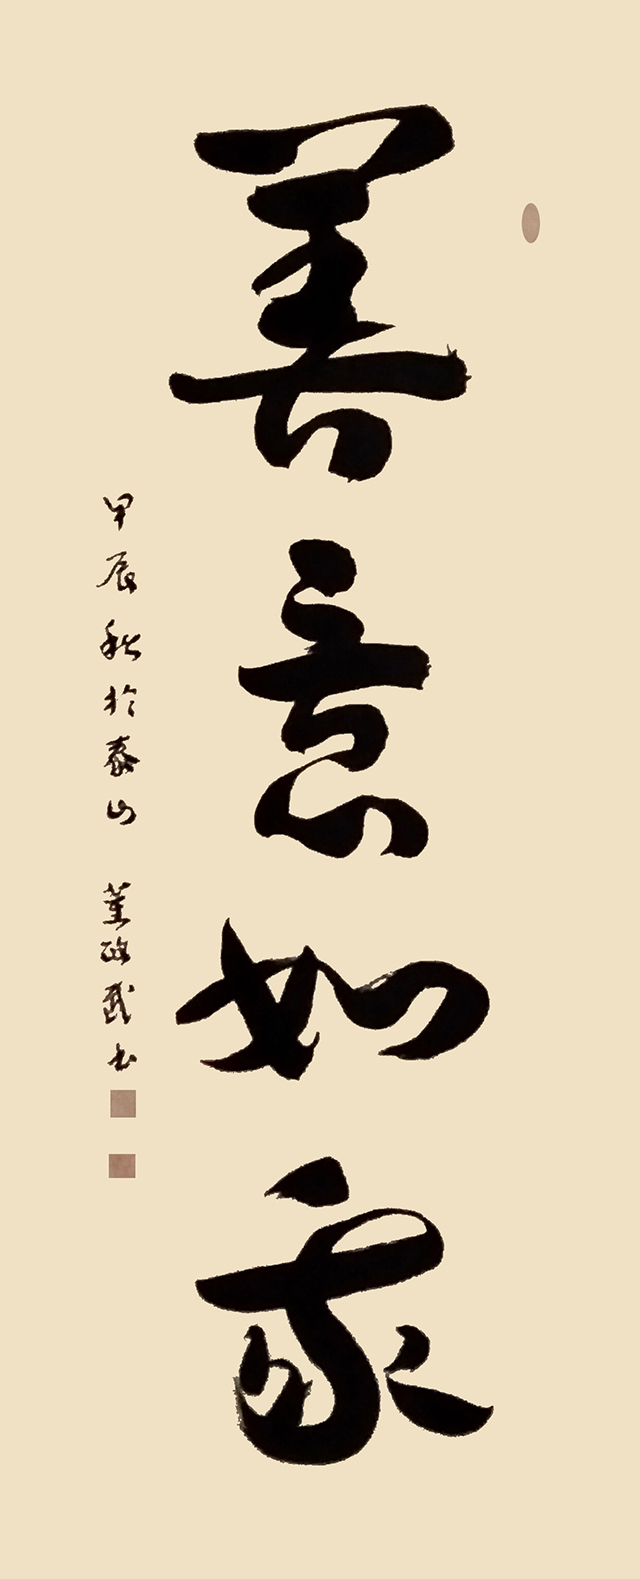 善意如家
甲辰秋於泰山 董政武书